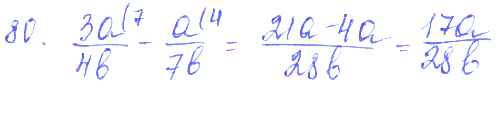 80. \frac{3a^{(7}}{4b} - \frac{a^{(4}}{7b} = \frac{21a - 4a}{28b} = \frac{17a}{28b}